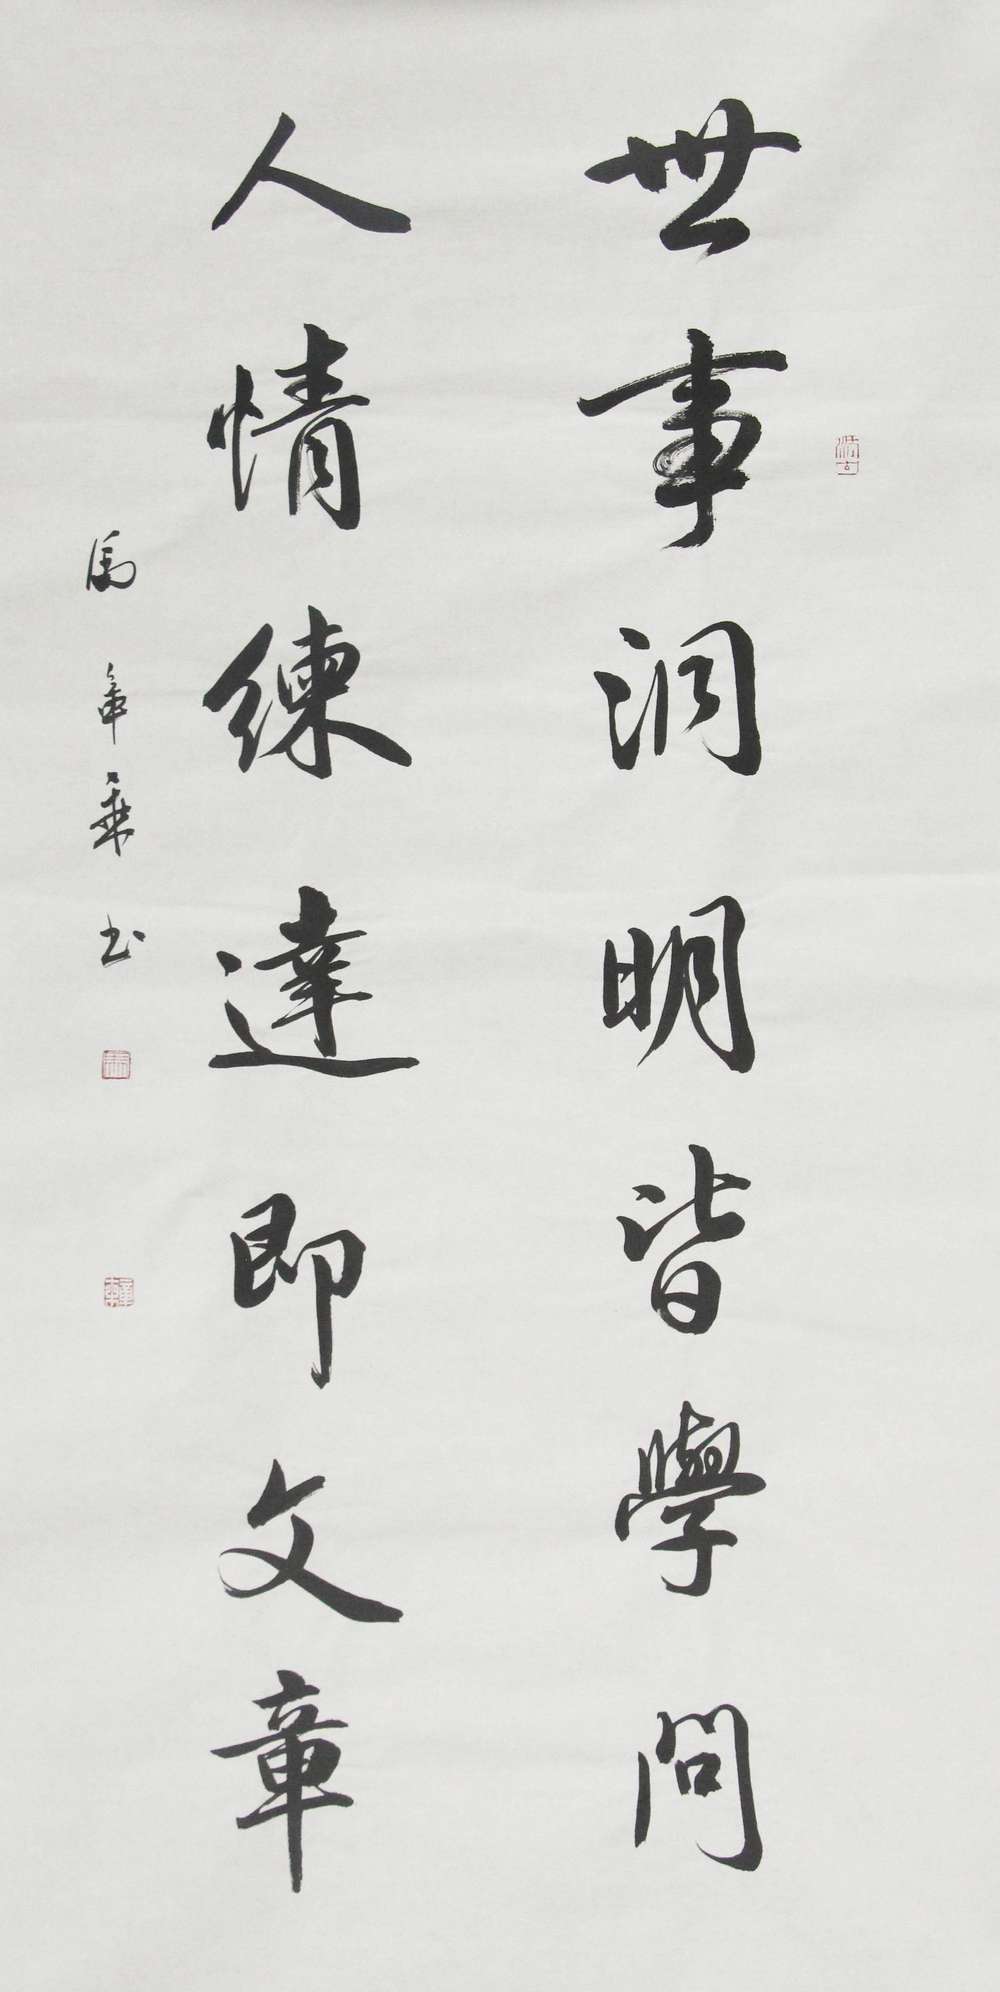 世事洞明皆學問
人情練達即文章
馬章乘书